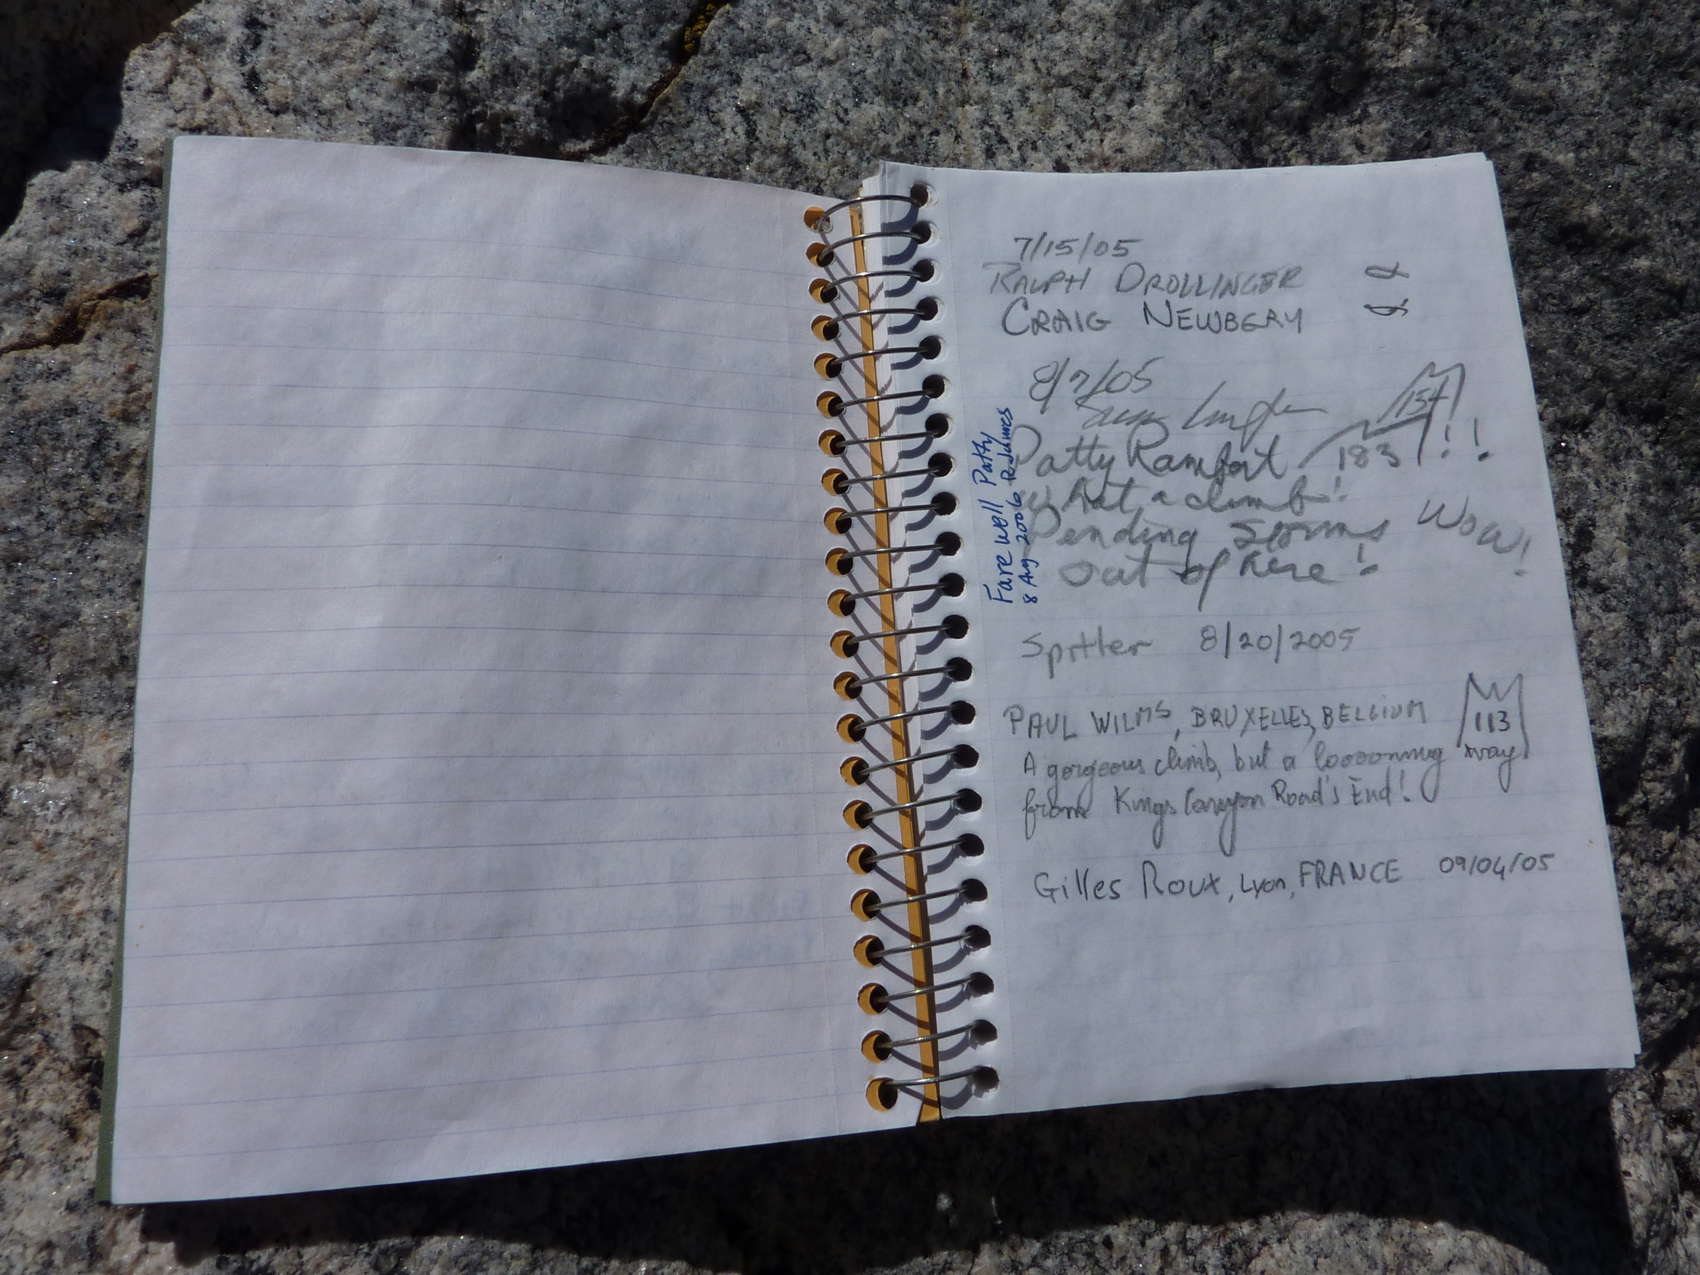 7/15/05
RALPH DROLLINGER
CRAIG NEWBERY
8/7/05
137
Patty Rambert 183 !!
What a climb!
Pending storms Wow!
out of here!
Fare well Patty
8 Aug 2006
Spitler 8/20/2005
PAUL WILMS, BRUXELLES, BELGIUM 113
A gorgeous climb, but a looooonnng way
from Kings Canyon Road's End!
Gilles Roux, Lyon, FRANCE 09/04/05